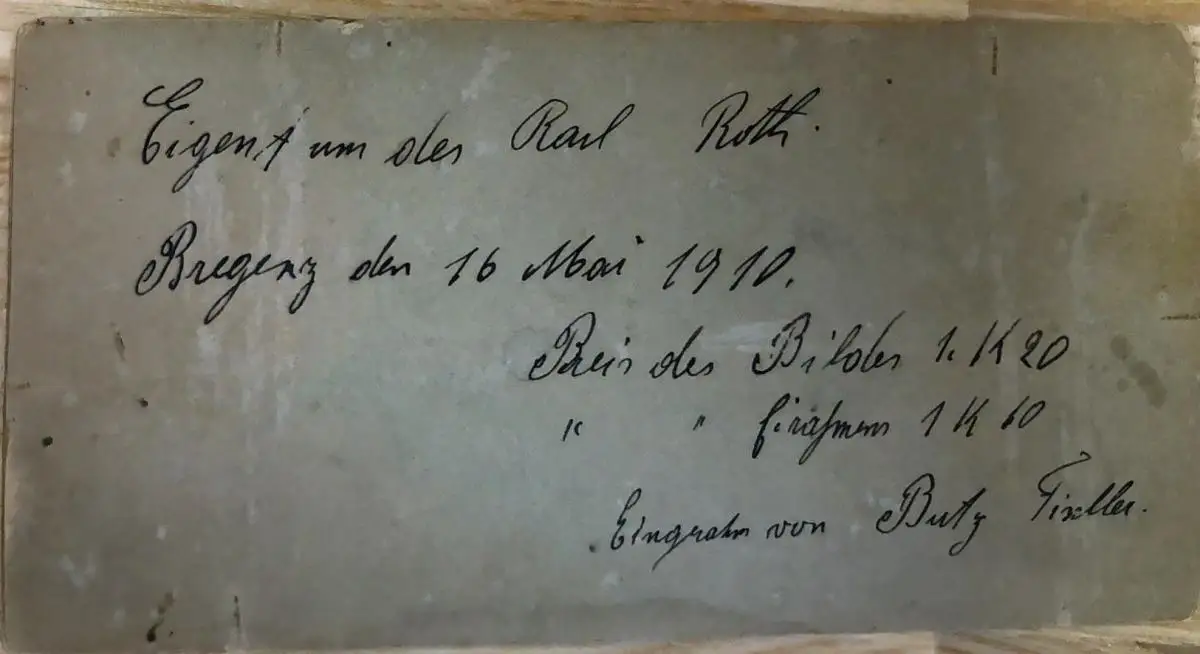 Eigentum des Karl Roth.
Bregenz den 16 Mai 1910.
Preis des Bildes 1. K 20
" " Eirahmens 1 K 60
Eingrahm von Butz Tischler.